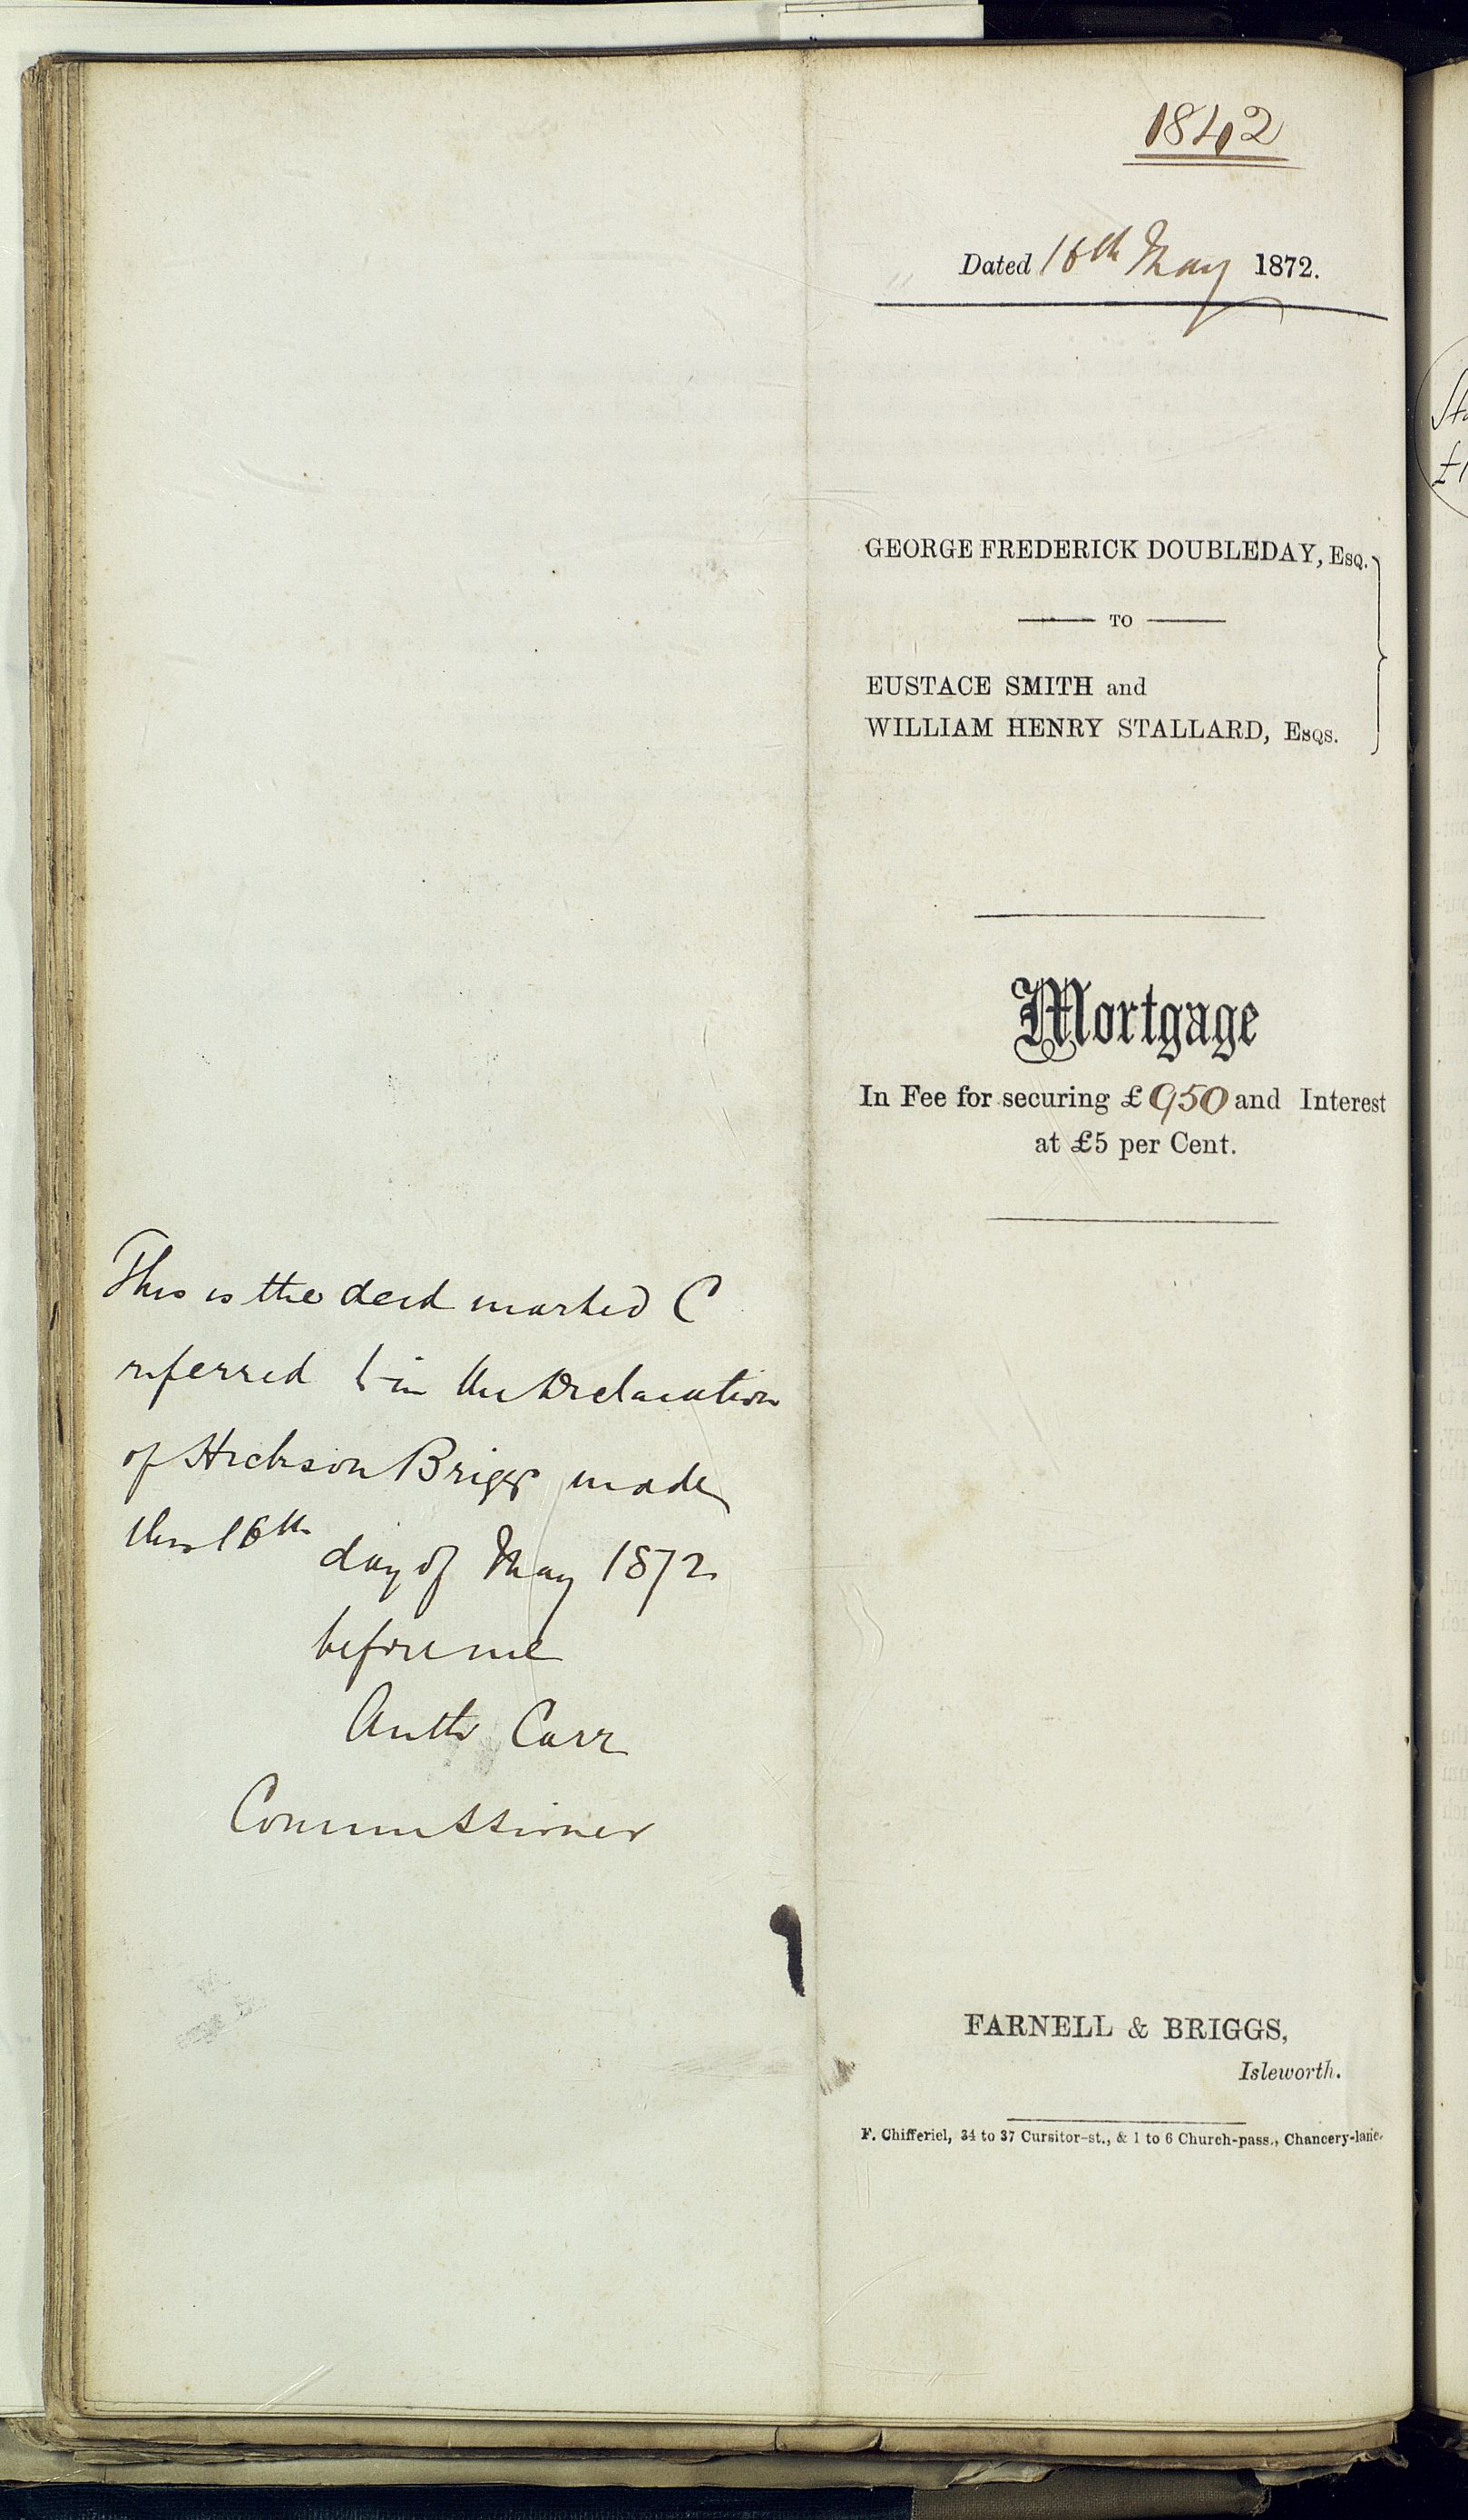 1842
Dated 16th May 1872.
GEORGE FREDERICK DOUBLEDAY, Esq.
TO
EUSTACE SMITH and
WILLIAM HENRY STALLARD, Esqs.
Mortgage
In Fee for securing £950 and Interest
at £5 per Cent.
This is the deed marked C
referred to in the Declaration
of Hickson Briggs made
this 16th day of May 1872
before me
Anth Carr
Commissioner
FARNELL & BRIGGS,
Isleworth.
F. Chifferiel, 34 to 37 Cursitor-st., & 1 to 6 Church-pass., Chancery-lane.